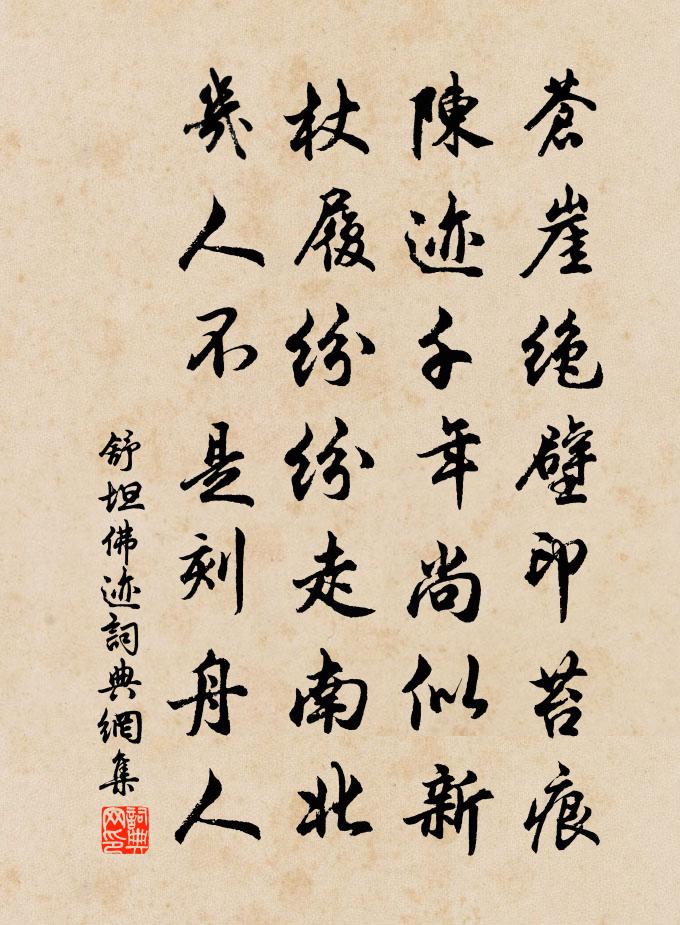 蒼崖绝壁印苔痕
陳迹千年尚似新
杖履纷纷走南北
幾人不是刻舟人
舒坦佛迹詞典網集
詞典网印